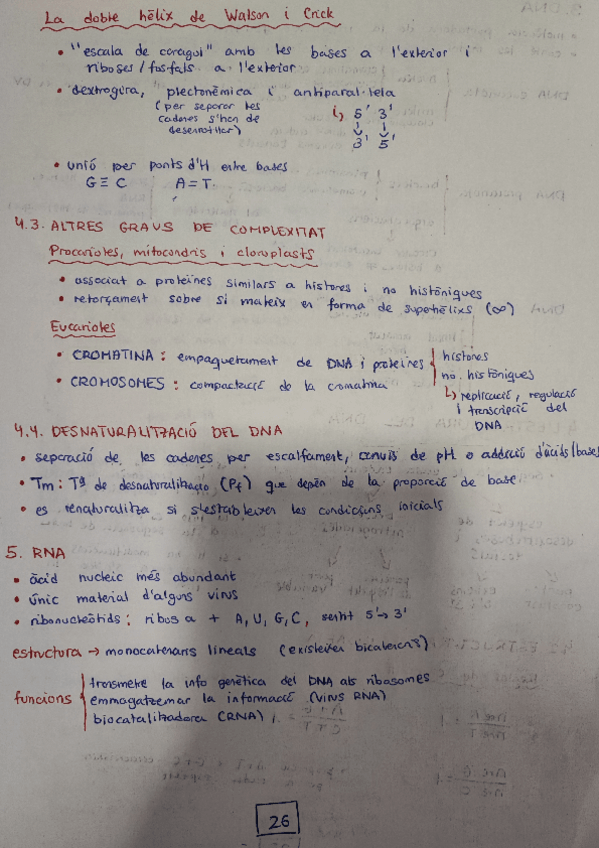 La doble hèlix de Watson i Crick
• "escala de caragol" amb les bases a l'exterior i
riboses/fosfats a l'exterior
• dextrogira, plectonèmica i antiparal·lela
(per separar les
cadenes s'han de
desenrotllar)
↳ 5' 3'
↓ ↓
3' 5'
• unió per ponts d'H entre bases
G≡C A=T
4.3. ALTRES GRAUS DE COMPLEXITAT
Procariotes, mitocondris i cloroplasts
• associat a proteïnes similars a histones i no históniques
• retorçament sobre si mateix en forma de superhèlixs (∞)
Eucariotes
• CROMATINA: empaquetament de DNA i proteïnes
histones
no històniques
↳ replicació, regulació
i transcripció del
DNA
• CROMOSOMES: compactació de la cromatina
4.4. DESNATURALITZACIÓ DEL DNA
• separació de les cadenes per escalfament, canvis de pH o addició d'àcids/bases
• Tm: Tª de desnaturalització (Pf) que depèn de la proporció de base
• es renaturalitza si s'estableixen les condicions inicials
5. RNA
• àcid nucleic més abundant
• únic material d'alguns virus
• ribonucleòtids: ribosa + A, U, G, C, sentit 5'→3'
estructura → monocatenaris lineals (existeixen bicatenaris)
funcions
transmetre la info genètica del DNA als ribosomes
emmagatzemar la informació (virus RNA)
biocatalitzadora (RNA)
26